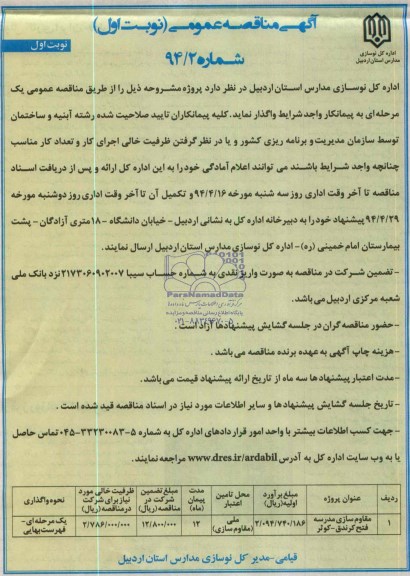 آگهی مناقصه عمومی (نوبت اول)
شماره ۹۴/۲
نوبت اول
اداره کل نوسازی
مدارس استان اردبیل
اداره کل نوسازی مدارس استان اردبیل در نظر دارد پروژه مشروحه ذیل را از طریق مناقصه عمومی یک
مرحله‌ای به پیمانکار واجد شرایط واگذار نماید. کلیه پیمانکاران تایید صلاحیت شده رشته آبنیه و ساختمان
توسط سازمان مدیریت و برنامه ریزی کشور و یا در نظر گرفتن ظرفیت خالی اجرای کار و تعداد کار مناسب
چنانچه واجد شرایط باشند می توانند اعلام آمادگی خود را به این اداره کل ارائه و پس از دریافت اسناد
مناقصه تا آخر وقت اداری روز سه شنبه مورخه ۹۴/۴/۱۶ و تکمیل آن تا آخر وقت اداری روز دوشنبه مورخه
۹۴/۴/۲۹ پیشنهاد خود را به دبیرخانه اداره کل به نشانی اردبیل - خیابان دانشگاه - ۱۸ متری آزادگان - پشت
بیمارستان امام خمینی (ره) - اداره کل نوسازی مدارس استان اردبیل ارسال نمایند.
- تضمین شرکت در مناقصه به صورت واریز نقدی به شماره حساب سیبا ۲۱۷۳۰۶۰۹۰۲۰۰۷ نزد بانک ملی
شعبه مرکزی اردبیل می‌باشد.
ParsNamadData
- حضور مناقصه گران در جلسه گشایش پیشنهادها آزاد است.
- هزینه چاپ آگهی به عهده برنده مناقصه می‌باشد.
- مدت اعتبار پیشنهادها سه ماه از تاریخ ارائه پیشنهاد قیمت می‌باشد.
- تاریخ جلسه گشایش پیشنهادها و سایر اطلاعات مورد نیاز در اسناد مناقصه قید شده است.
- جهت کسب اطلاعات بیشتر با واحد امور قراردادهای اداره کل به شماره ۵-۳۳۲۳۰۰۸۳-۰۴۵ تماس حاصل
یا به وب سایت اداره کل به آدرس www.dres.ir/ardabil مراجعه نمایند.
ردیف عنوان پروژه مبلغ برآورد اولیه (ریال) محل تامین اعتبار مدت پیمان (ماه) مبلغ تضمین شرکت در مناقصه (ریال) ظرفیت خالی مورد نیاز برای شرکت در مناقصه (ریال) نحوه واگذاری
۱ مقاوم سازی مدرسه فتح کرندق - کوثر ۲/۰۹۴/۷۴۰/۱۸۶ ملی (مقاوم سازی) ۱۲ ۱۲/۸۰۰/۰۰۰ ۲/۷۸۶/۰۰۰/۰۰۰ یک مرحله‌ای - فهرست بهایی
قیامی - مدیر کل نوسازی مدارس استان اردبیل